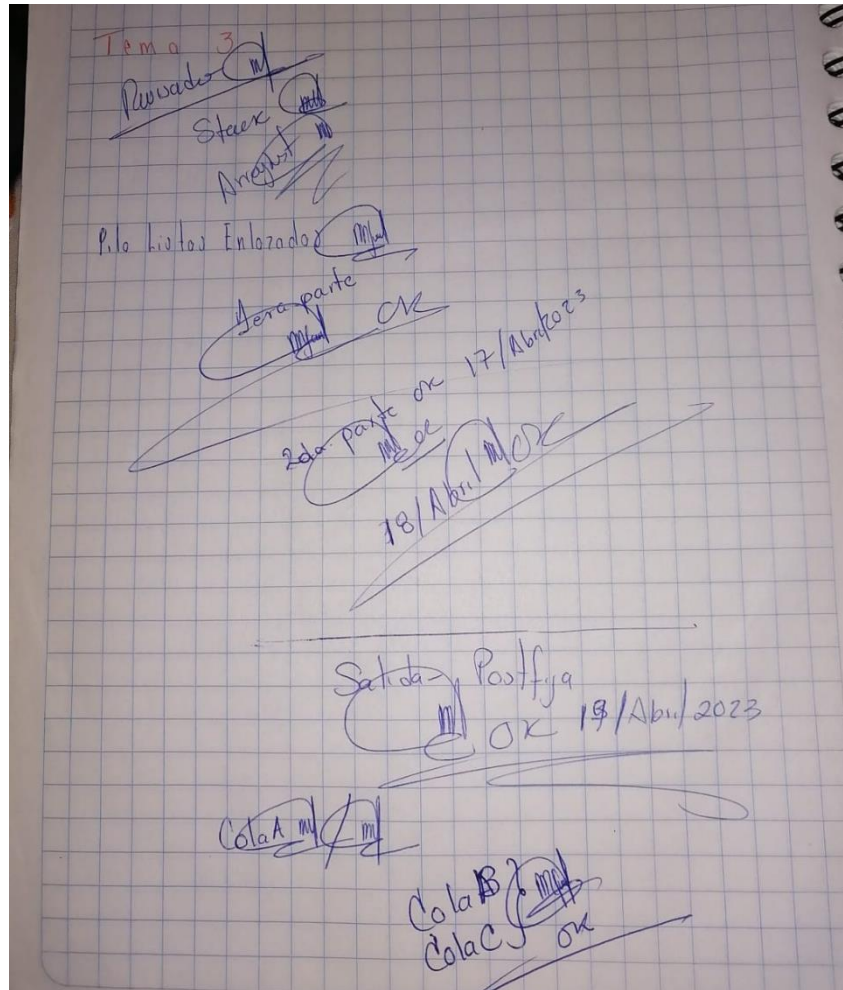 Tema 3
Stack
Arraylist
Pila Listas Enlazadas
1era parte
OK
2da parte ok 17/Abril/2023
OK
18/Abril OK
Salida Postfija
OK 19/Abril/2023
Cola A
Cola B
Cola C
OK